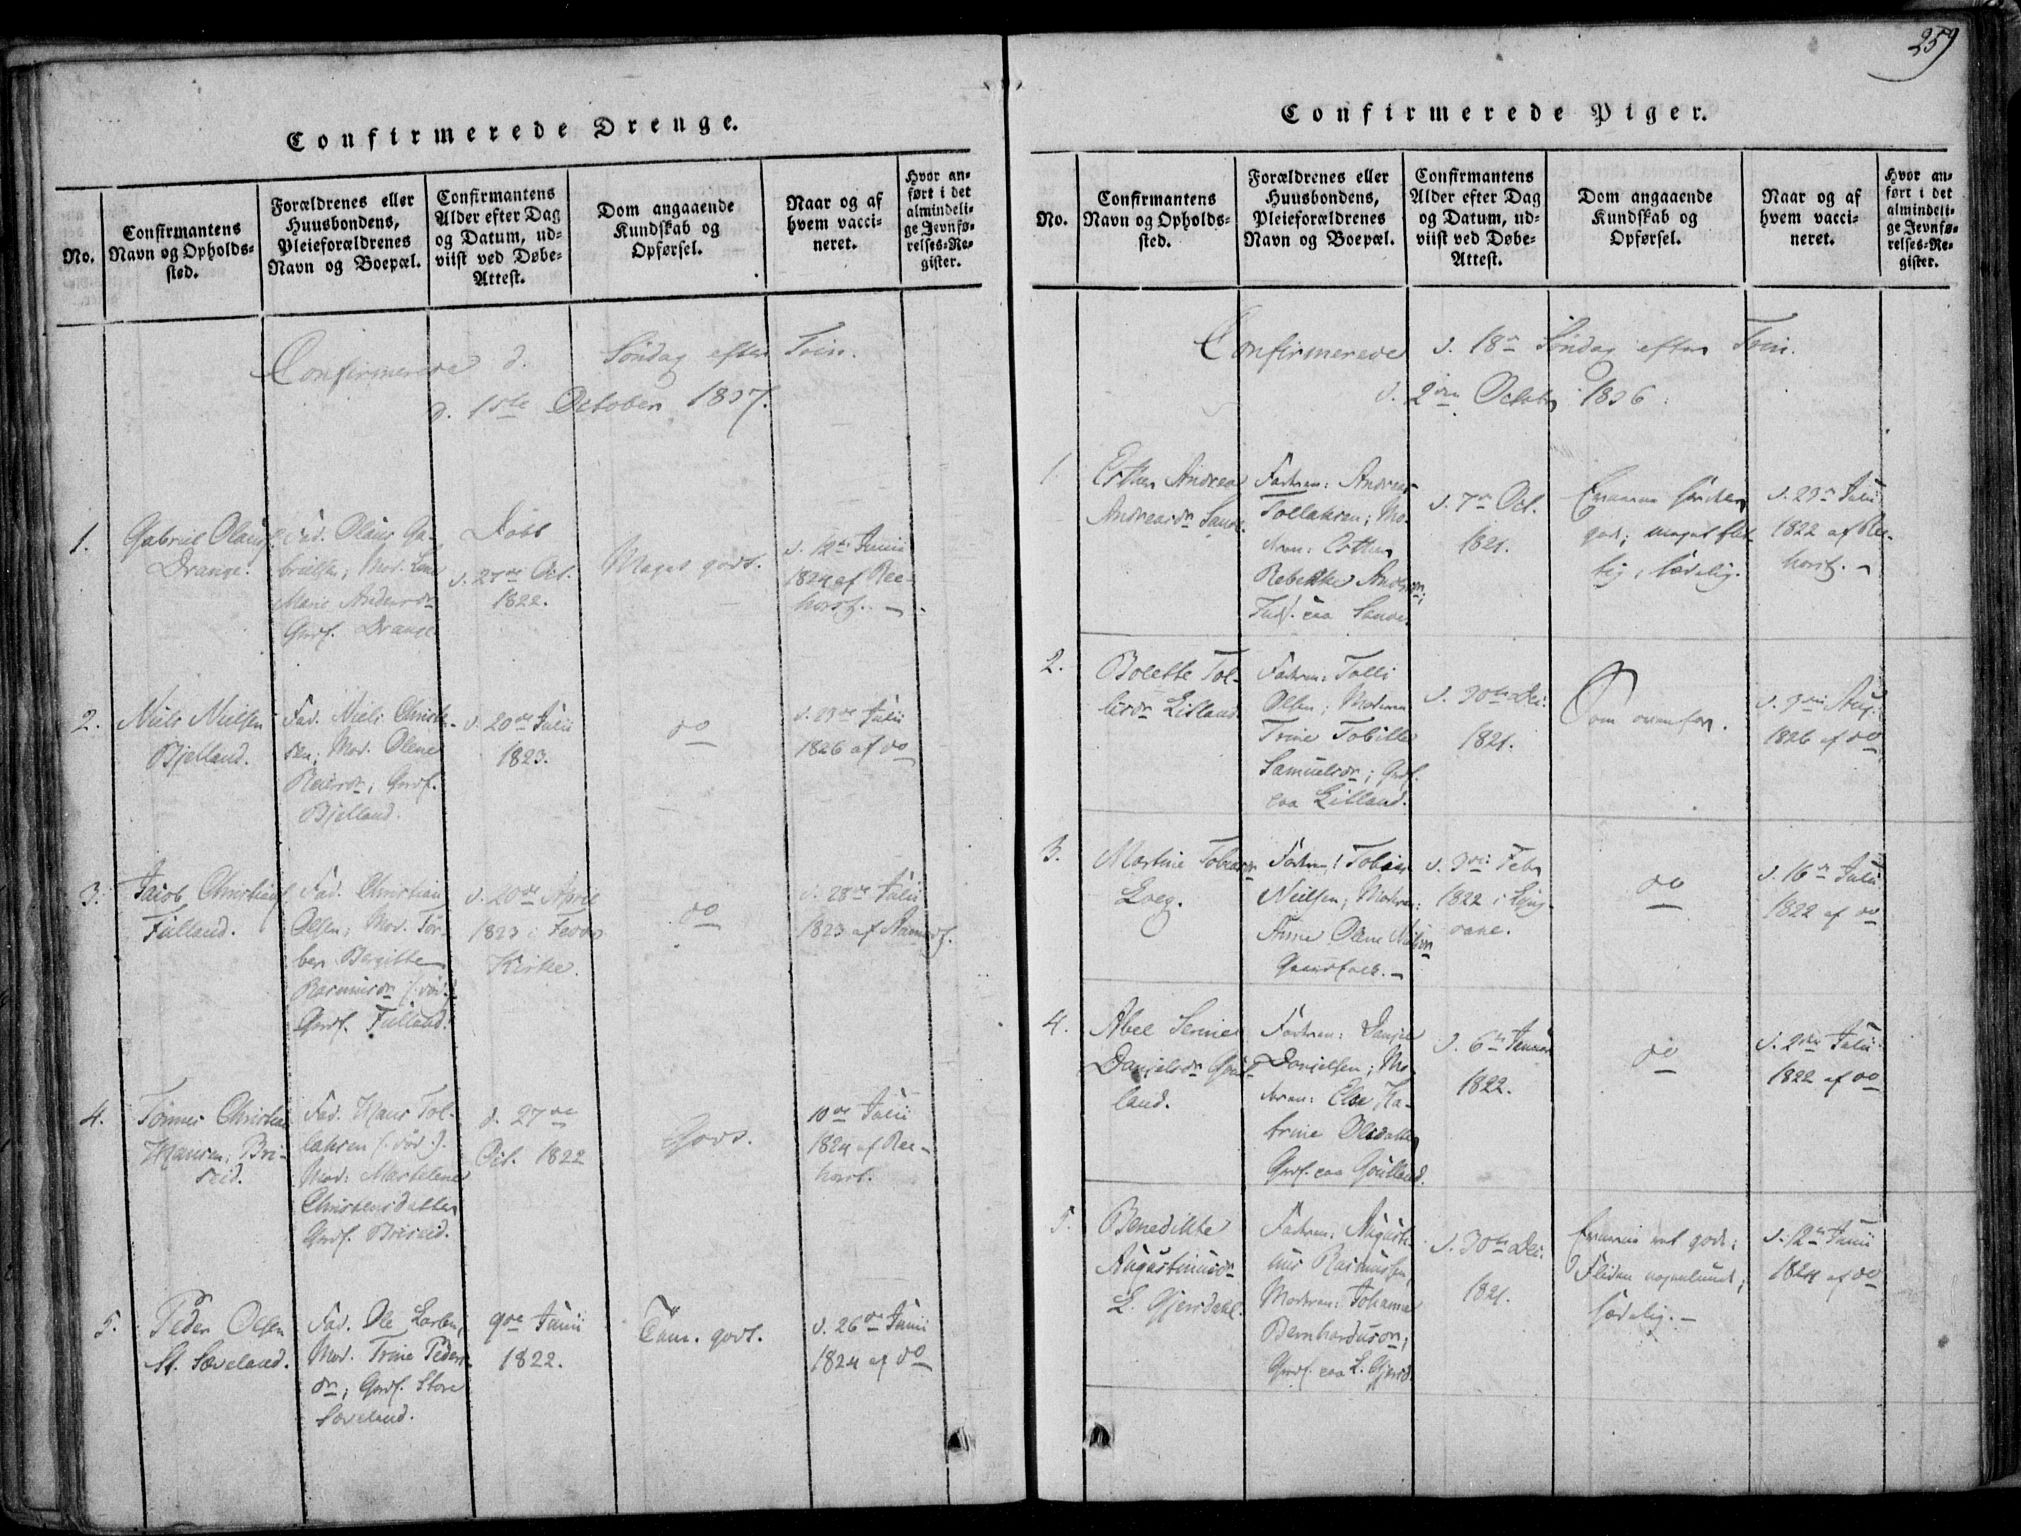 259
Confirmerede Drenge.
No.
Confirmantens
Navn og Opholds=
sted.
Forældrenes eller
Huusbondens,
Pleieforældrenes
Navn og Boepæl.
Confirmantens
Alder efter Dag
og Datum, ud=
viist ved Døbe=
Attest.
Dom angaaende
Kundskab og
Opførsel.
Naar og af
hvem vacci=
neret.
Hvor an=
ført i det
almindeli=
ge Jevnfø=
relses=Re=
gister.
Confirmerede d. Søndag efter Trin.
d. 1ste October 1837.
1.
Gabriel Olaus
Drange.
Fad. Olaus Ga-
brielsen; Mod. Lene
Marie Andersdr
Gmdf. Drange
Døbt
d. 27de Oct.
1822.
Meget godt.
d. 12te Junii
1824 af Ree-
horst.
2.
Niels Nielsen
Bjelland.
Fad. Niels Christe-
sen; Mod. Olene
Reiersdr; Gmdf.
Bjelland.
d. 20de Julii
1823.
do
d. 23de Julii
1826 af do
3.
Jacob Christians
Fulland.
Fad. Christian
Olsen; Mod. Tor-
ber Birgitte
Rasmusdr (: død :)
Gmdf. Fulland.
d. 20de April
1823 i Feda
Kirke.
do
d. 28de Julii
1823 af
4.
Tønnes Christian
Hansen, Bri-
seid.
Fad. Hans Tol-
laksen (: død :).
Mod: Martelene
Christensdatter
Gmdf. Briseid.
d. 27de
Oct. 1822
Godt.
10de Julii
1824 af Ree-
horst.
5.
Peder Olsen
St. Sæveland.
Fad. Ole Larsen,
Mod. Trine Peders-
dr; Gmdf. Store
Sæveland.
9de Junii
1822.
Tem. godt.
d. 26de Junii
1824 af do
Confirmerede Piger.
No.
Confirmantens
Navn og Opholds=
sted.
Forældrenes eller
Huusbondens,
Pleieforældrenes
Navn og Boepæl.
Confirmantens
Alder efter Dag
og Datum, ud=
viist ved Døbe=
Attest.
Dom angaaende
Kundskab og
Opførsel.
Naar og af
hvem vacci=
neret.
Hvor an=
ført i det
almindeli=
ge Jevnfø=
relses=Re=
gister.
Confirmerede d. 18de Søndag efter Trin.
d. 2den October 1836.
1.
Esther Andrea
Andreasdr Sande
Fadren: Andreas
Tollaksen; Mo-
dren: Esther
Rebekke Andersdr;
Indf. paa Sande
d. 7de Oct.
1821.
god; meget flit-
tig; sædelig.
d. 23de Julii
1822 af Ree-
horst.
2.
Bolette Tol-
lisdr Lilland.
Fadren: Tolli
Olsen; Modren
Trine Tobitte
Samuelsdr; Gmdf.
paa Lilland.
d. 30te Dec.
1821.
Som ovenfor.
d. 3die Aug.
1826 af do
3.
Martine Tobiasdr
Loeg.
Fadren: Tobias
Nielsen; Modren:
Anne Olene Nielsdr
Gaardfolk.
d. 3die Febr
1822 i Lyng-
dahl.
do
d. 16de Julii
1822 af do
4.
Abel Serine
Danjelsdr
land.
Fadren: Danjel
Danjelsen; Mo-
dren: Else Ka-
trine Olsdatter
Gmdf. paa
d. 6te Januar
1822.
do
d. 2den Julii
1822 af do
5.
Benedikte
Augustinusdr
L. Gjersdahl.
Fadren: Augusti-
nus Rasmussen,
Modren: Johanne
Bernhardusdr;
Gmdf. paa L. Gjersd.
d. 30te Dec.
1821.
ret god;
Fliden nogenlunde;
sædelig.
d. 12te Junii
1824 af do